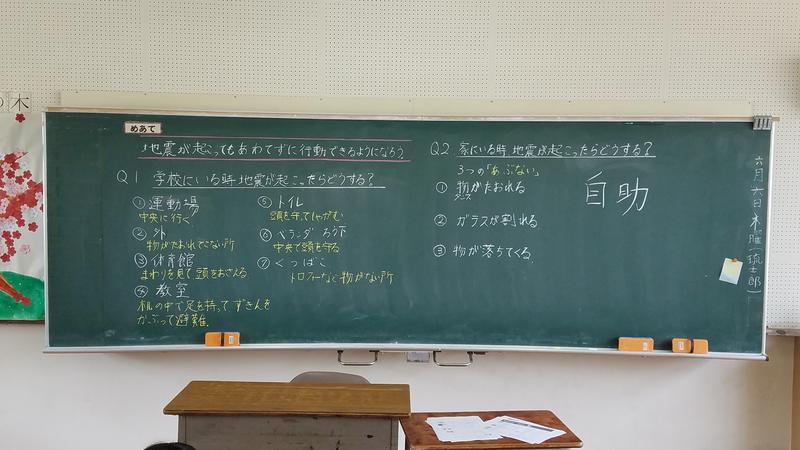 木
めあて
地震が起こってもあわてずに行動できるようになろう
Q1 学校にいる時地震が起こったらどうする?
①運動場
中央に行く
②外
物がたおれてこない所
③体育館
まわりを見て頭をおさえる
④教室
机の中で足を持って ずきんを
かぶって避難.
⑤トイレ
頭を守ってしゃがむ
⑥ベランダ ろう下
中央で頭を守る
⑦くつばこ
トロフィーなど物がない所
Q2 家にいる時地震が起こったらどうする?
3つの「あぶない」
①物がたおれる
タンス
②ガラスが割れる
③物が落ちてくる.
自助
六月六日木曜(琉士郎)